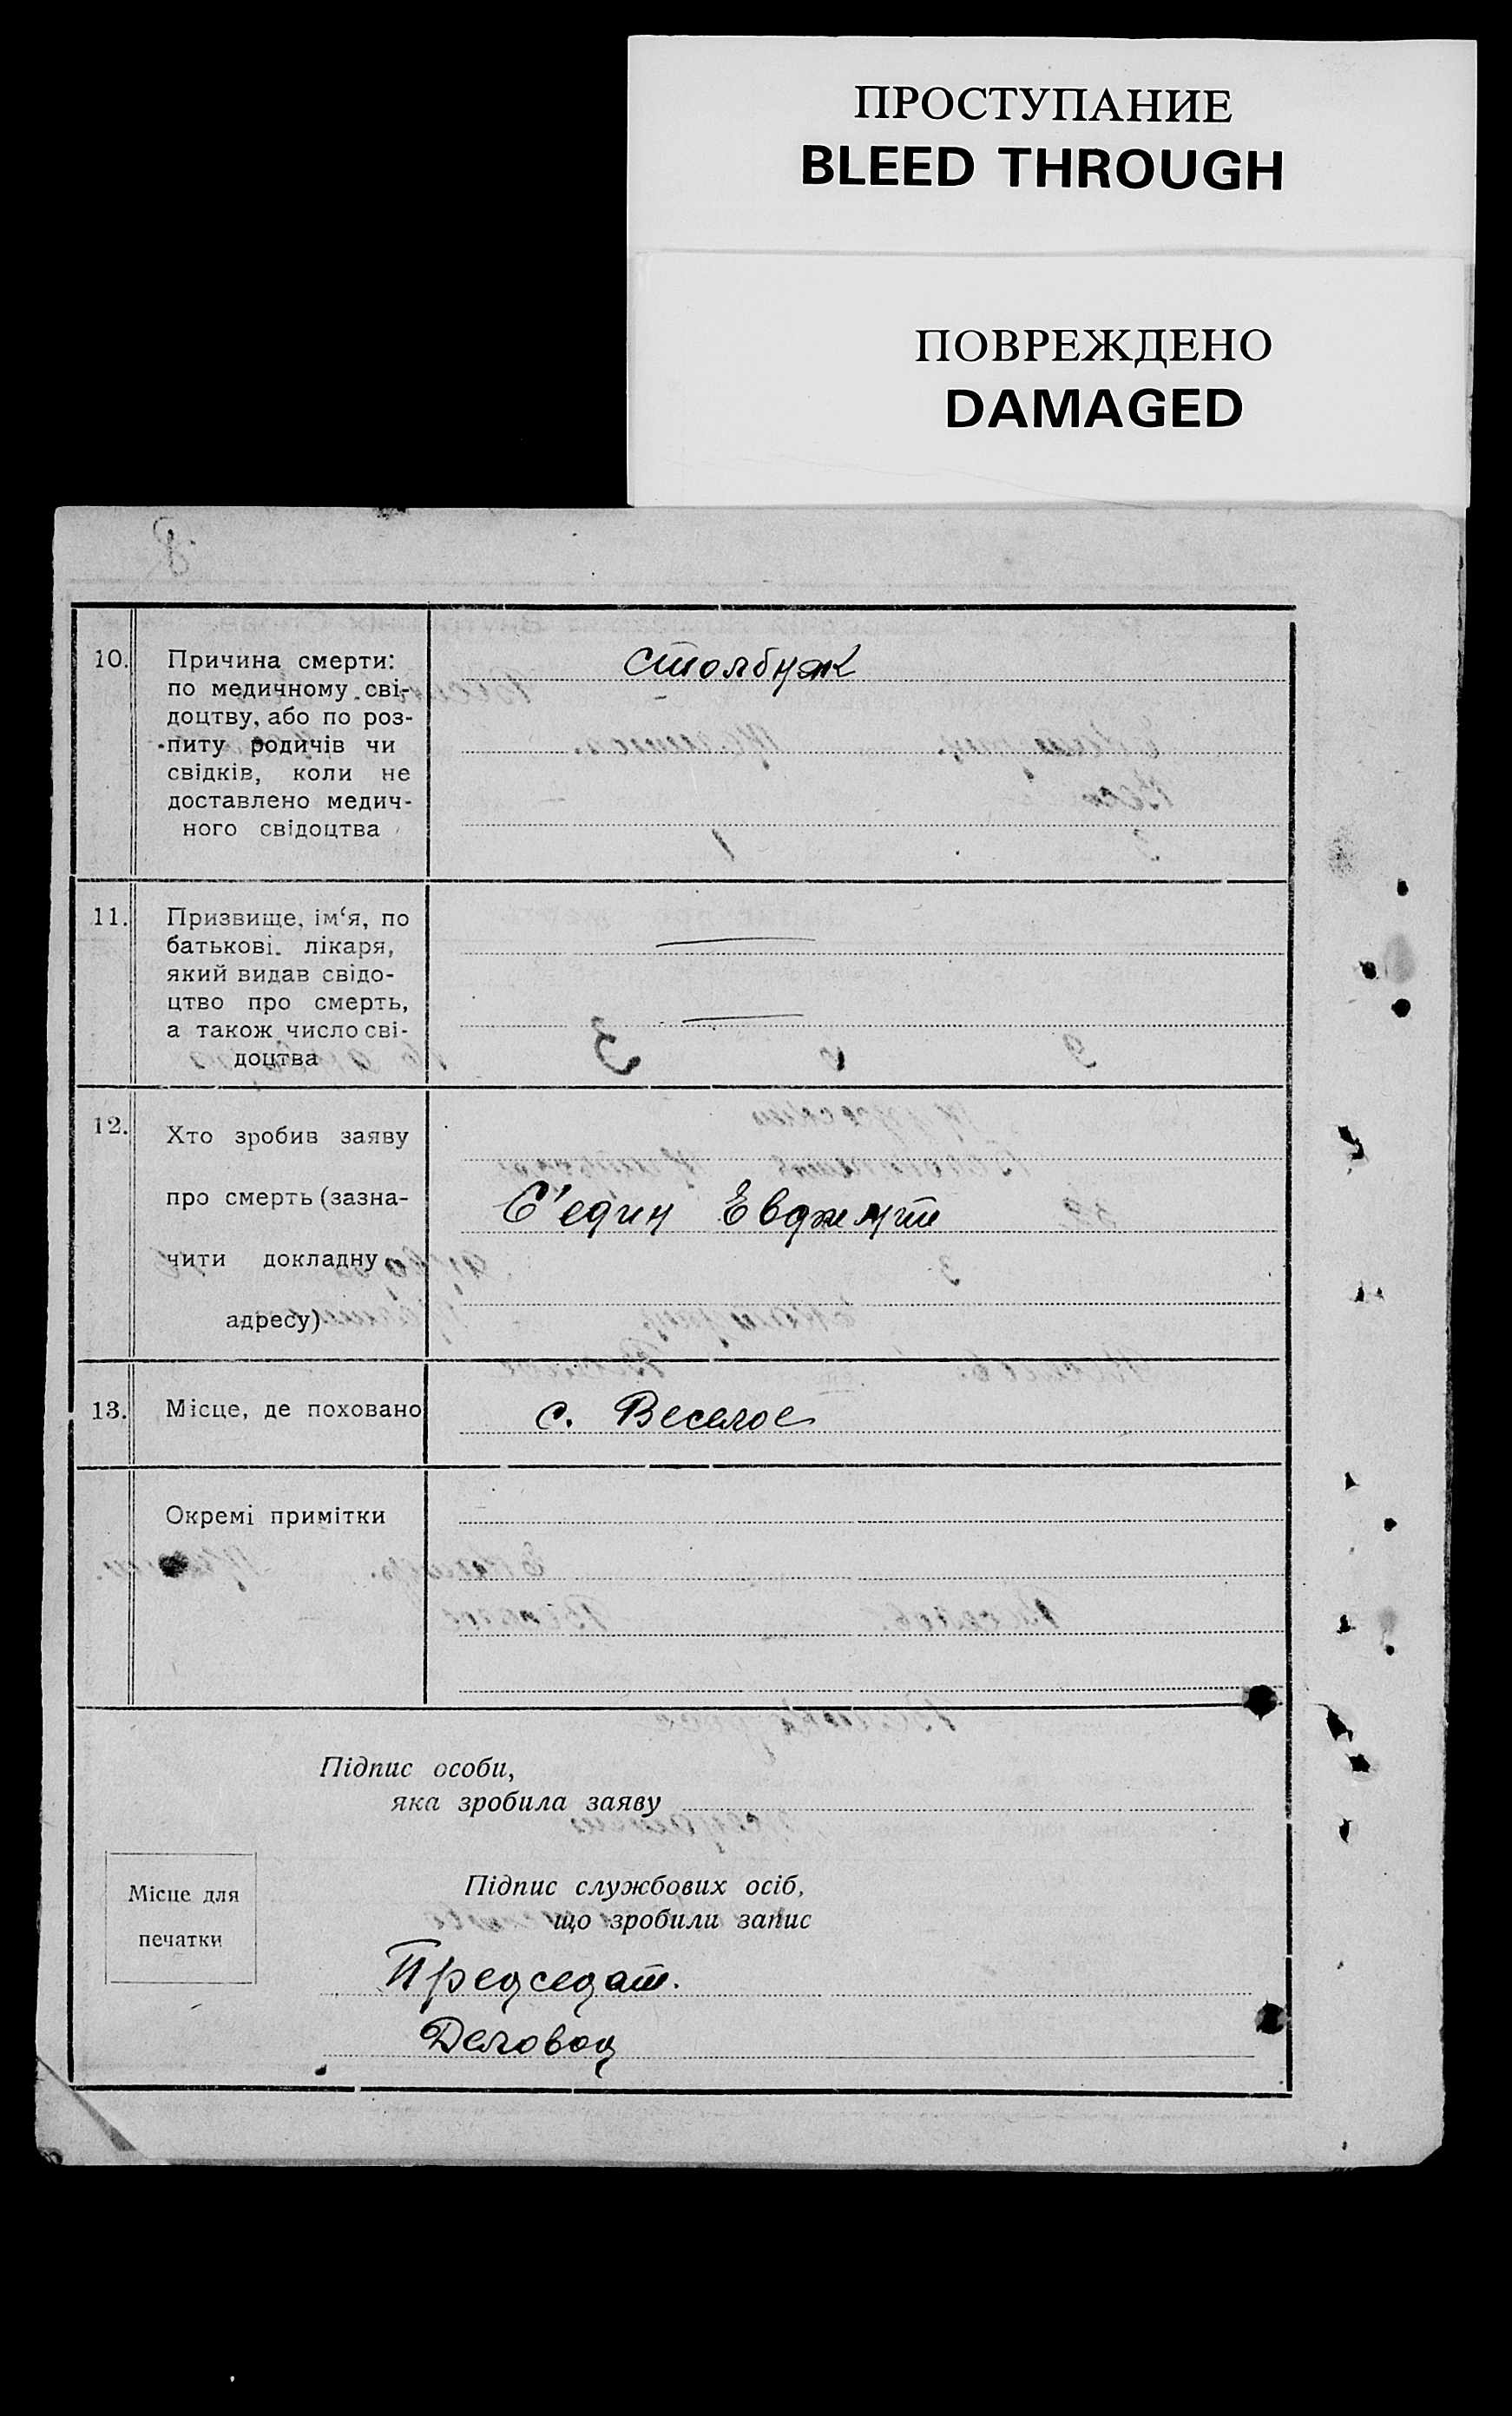 ПРОСТУПАНИЕ
BLEED THROUGH
ПОВРЕЖДЕНО
DAMAGED
10. Причина смерти:
по медичному сві-
доцтву, або по роз-
питу родичів чи
свідків, коли не
доставлено медич-
ного свідоцтва
столбняк
11. Призвище, ім‘я, по
батькові. лікаря,
який видав свідо-
цтво про смерть,
а також число сві-
доцтва
3
12. Хто зробив заяву
про смерть (зазна-
чити докладну
адресу)
13. Місце, де поховано
с. Веселое
Окремі примітки
Підпис особи,
яка зробила заяву
Місце для
печатки
Підпис службових осіб,
що зробили запис
Председат.
Деловод